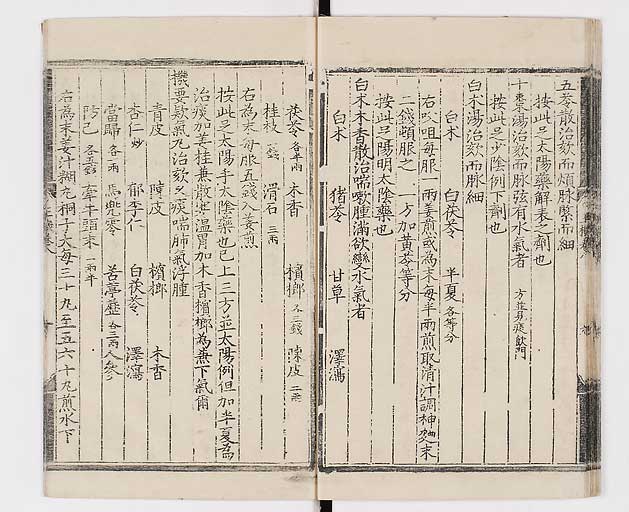 五苓散治欬而煩脉緊而細
按此足太陽藥解表之劑也
十棗湯治欬而脉弦有水氣者 方並見痰飲門
按此足少陰例下劑也
白朮湯治欬而脉細
白朮 白茯苓 半夏各等分
右㕮咀每服一兩姜煎或爲末每半兩煎取清汁調神麯末
二錢頓服之 一方加黄芩等分
按此足陽明太陰藥也
白朮木香散治喘嗽腫滿欲變水氣者
白朮 猪苓 甘草 澤瀉
茯苓各半兩 木香 檳榔各三錢 陳皮二兩
桂枝二錢 滑石三兩
右爲末每服五錢入姜煎
按此足太陽手太陰藥也已上三方並太陽例但加半夏爲
治痰加姜桂兼散寒温胃加木香檳榔爲兼下氣爾
機要欵氣丸治欬久痰喘肺氣浮腫
青皮 陳皮 檳榔 木香
杏仁炒 郁李仁 白茯苓 澤瀉
當歸各一兩 馬兜零 苦葶藶各三兩 人參
防己各五錢 牽牛頭末一兩半
右爲末姜汁糊丸桐子大每三十丸至五六十丸煎水下